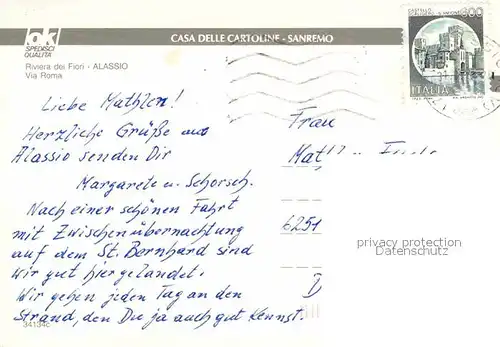 ok
SPEDISCI
QUALITÀ
CASA DELLE CARTOLINE - SANREMO
Riviera dei Fiori - ALASSIO
Via Roma
600
ITALIA
Liebe Mathlen!
Herzliche Grüße aus
Alassio senden Dir
Margarete u. Schorsch.
Nach einer schönen Fahrt
mit Zwischenübernachtung
auf dem St. Bernhard sind
wir gut hier gelandet.
Wir gehen jeden Tag an den
Strand, den Du ja auch gut kennst.
34134c
Frau
Mat
6251
D
privacy protection
Datenschutz